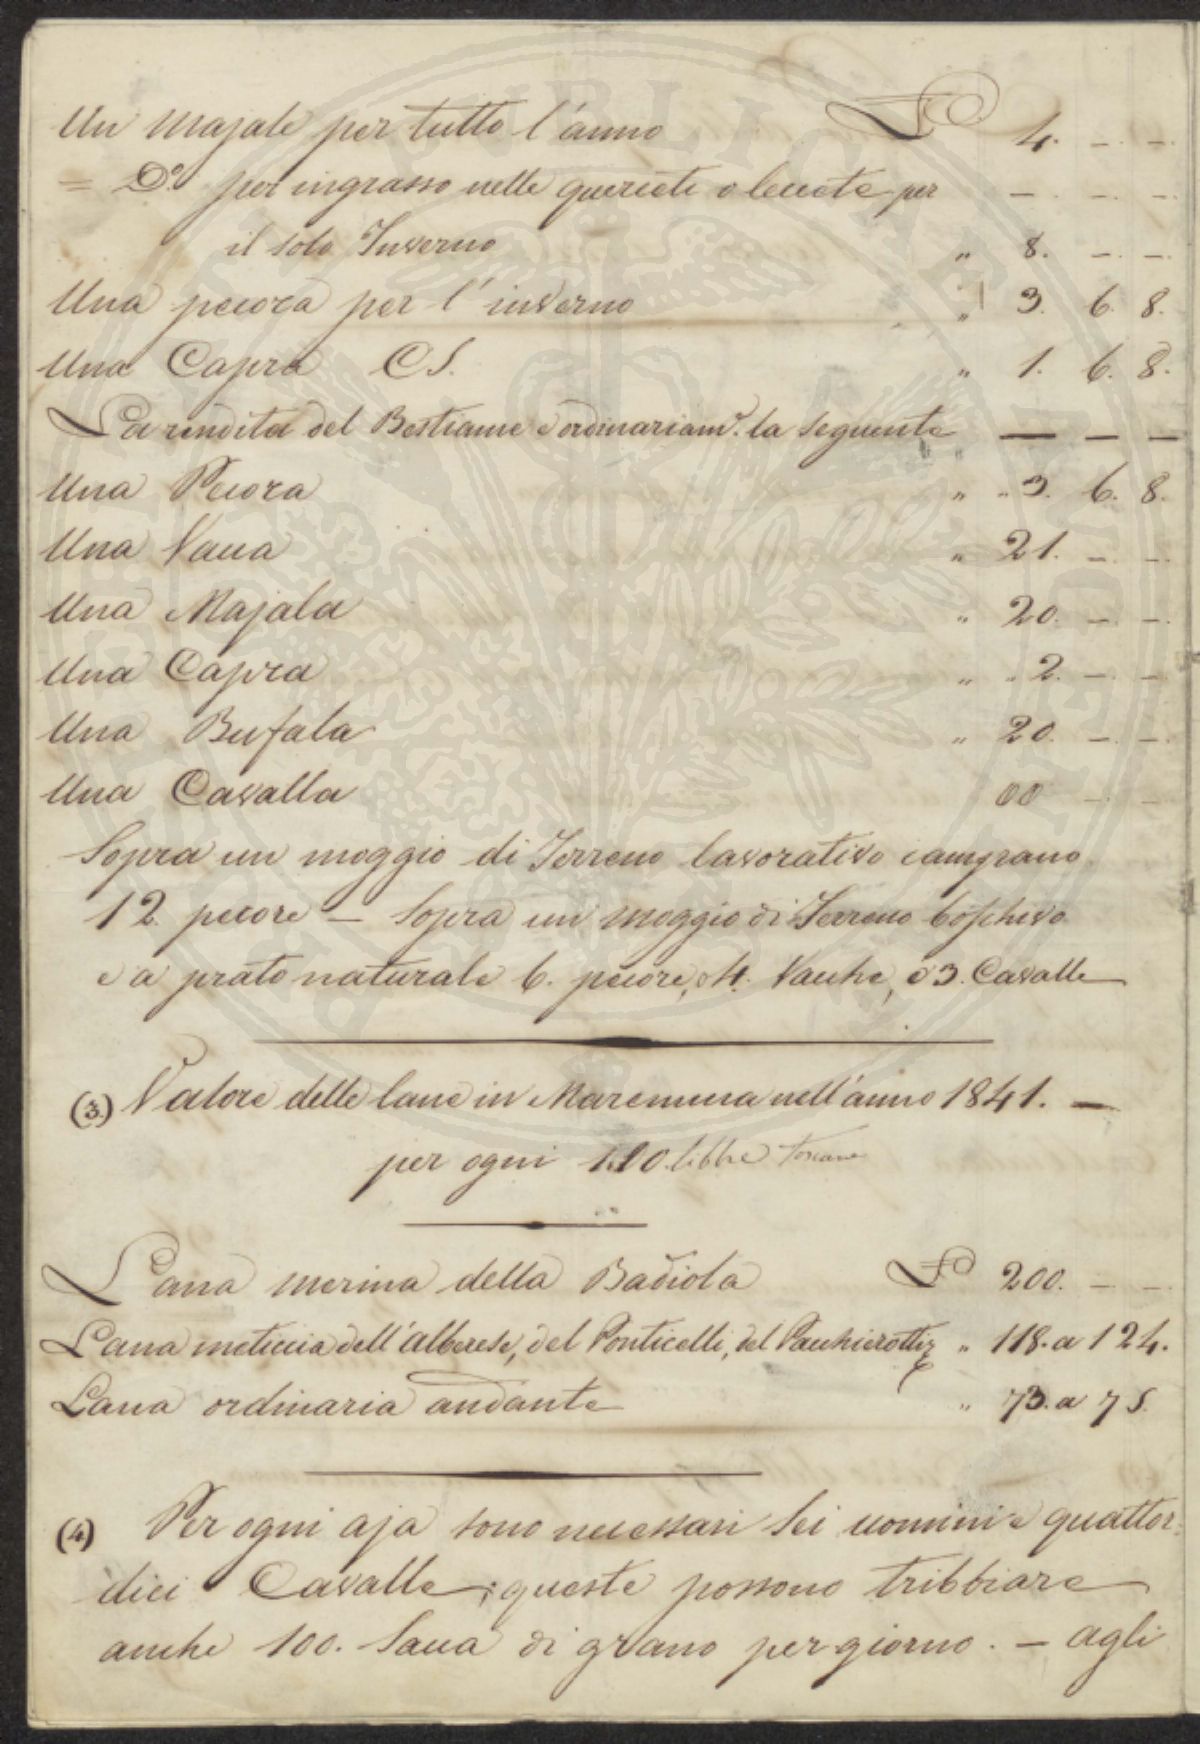 Un Majale per tutto l'anno £ 4. — —
= Do. per ingrasso nelle querceti o leccete per — — —
il solo Inverno " 8. — —
Una pecora per l'inverno " 3. 6. 8.
Una Capra C.S. " 1. 6. 8.
La rendita del Bestiame è ordinariam. la seguente — — —
Una Pecora " " 3. 6. 8.
Una Vacca " 21. — —
Una Majala " 20. — —
Una Capra " " 2. — —
Una Bufala " 20. — —
Una Cavalla 00 — —
Sopra un moggio di Terreno lavorativo campano
12 pecore — Sopra un moggio di Terreno boschivo
e a prato naturale 6. pecore, o 4. Vacche, o 3. Cavalle
(3) Valore delle lane in Maremma nell'anno 1841. —
per ogni 100. libbre Toscane
Lana merina della Badiola £ 200. — —
Lana meticcia dell'alberese, del Ponticelli, del Pacchierotti " 118. a 124.
Lana ordinaria andante " 73. a 75.
(4) Per ogni aja sono necessari Sei uomini e quattor:
dici Cavalle; queste possono tribbiare
anche 100. Sacca di grano per giorno. — agli